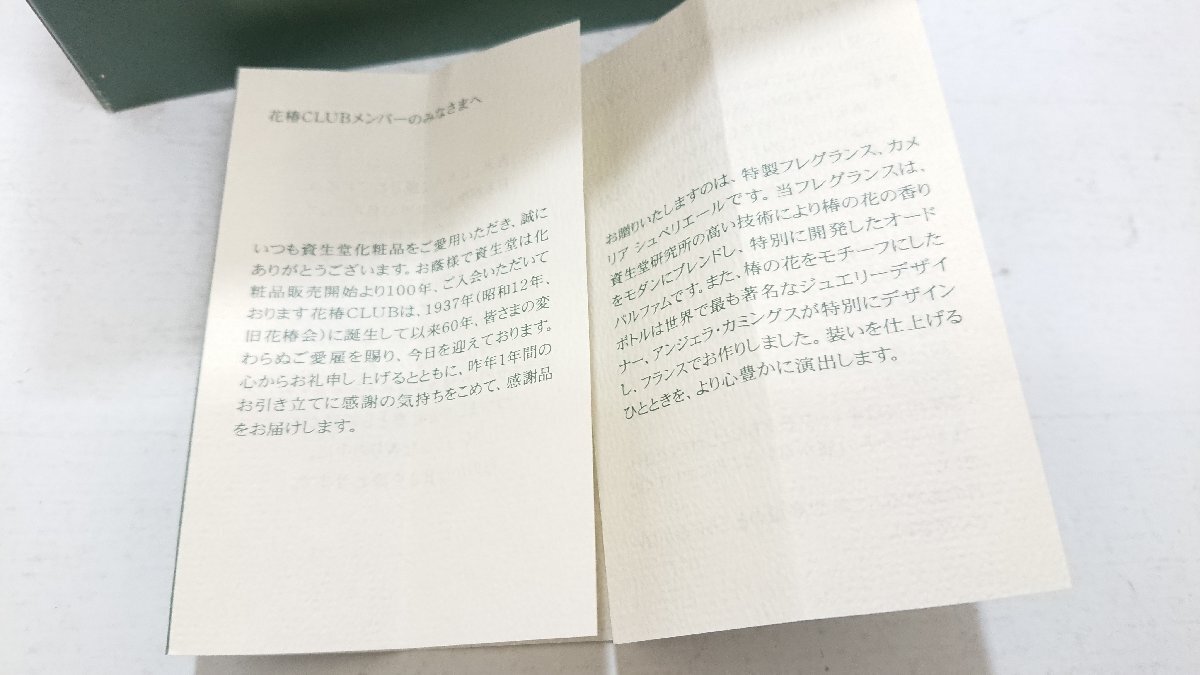 花椿CLUBメンバーのみなさまへ
いつも資生堂化粧品をご愛用いただき、誠に
ありがとうございます。お蔭様で資生堂は化
粧品販売開始より100年、ご入会いただいて
おります花椿CLUBは、1937年(昭和12年、
旧花椿会)に誕生して以来60年、皆さまの変
わらぬご愛雇を賜り、今日を迎えております。
心からお礼申し上げるとともに、昨年1年間の
お引き立てに感謝の気持ちをこめて、感謝品
をお届けします。
お贈りいたしますのは、特製フレグランス、カメ
リア シュペリエールです。当フレグランスは、
資生堂研究所の高い技術により椿の花の香り
をモダンにブレンドし、特別に開発したオード
パルファムです。また、椿の花をモチーフにした
ボトルは世界で最も著名なジュエリーデザイ
ナー、アンジェラ・カミングスが特別にデザイン
し、フランスでお作りしました。装いを仕上げる
ひとときを、より心豊かに演出します。